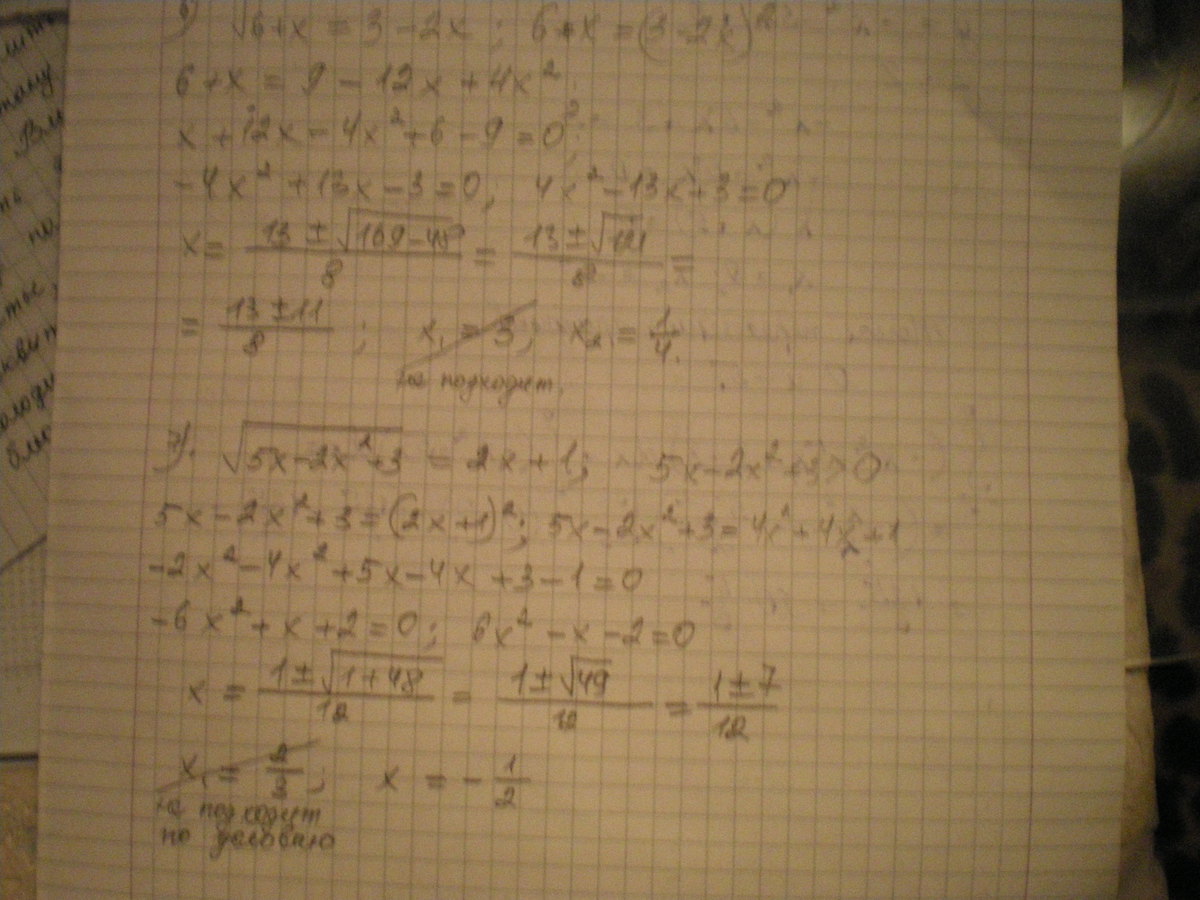 √6+x = 3-2x; 6+x=(3-2x)²
6+x = 9-12x+4x²
x+12x-4x²+6-9=0;
-4x²+13x-3=0, 4x²-13x+3=0
x= 13±√169-48 / 8 = 13±√121 / 8 =
= 13±11 / 8 ; x₁ = 3; x₂ = 1/4.
не подходит.
7). √5x-2x²+3 = 2x+1; 5x-2x²+3>0
5x-2x²+3=(2x+1)²; 5x-2x²+3=4x²+4x+1
-2x²-4x²+5x-4x+3-1=0
-6x²+x+2=0; 6x²-x-2=0
x = 1±√1+48 / 12 = 1±√49 / 12 = 1±7 / 12
x₁ = 2/3; x = -1/2
не подходит
по условию